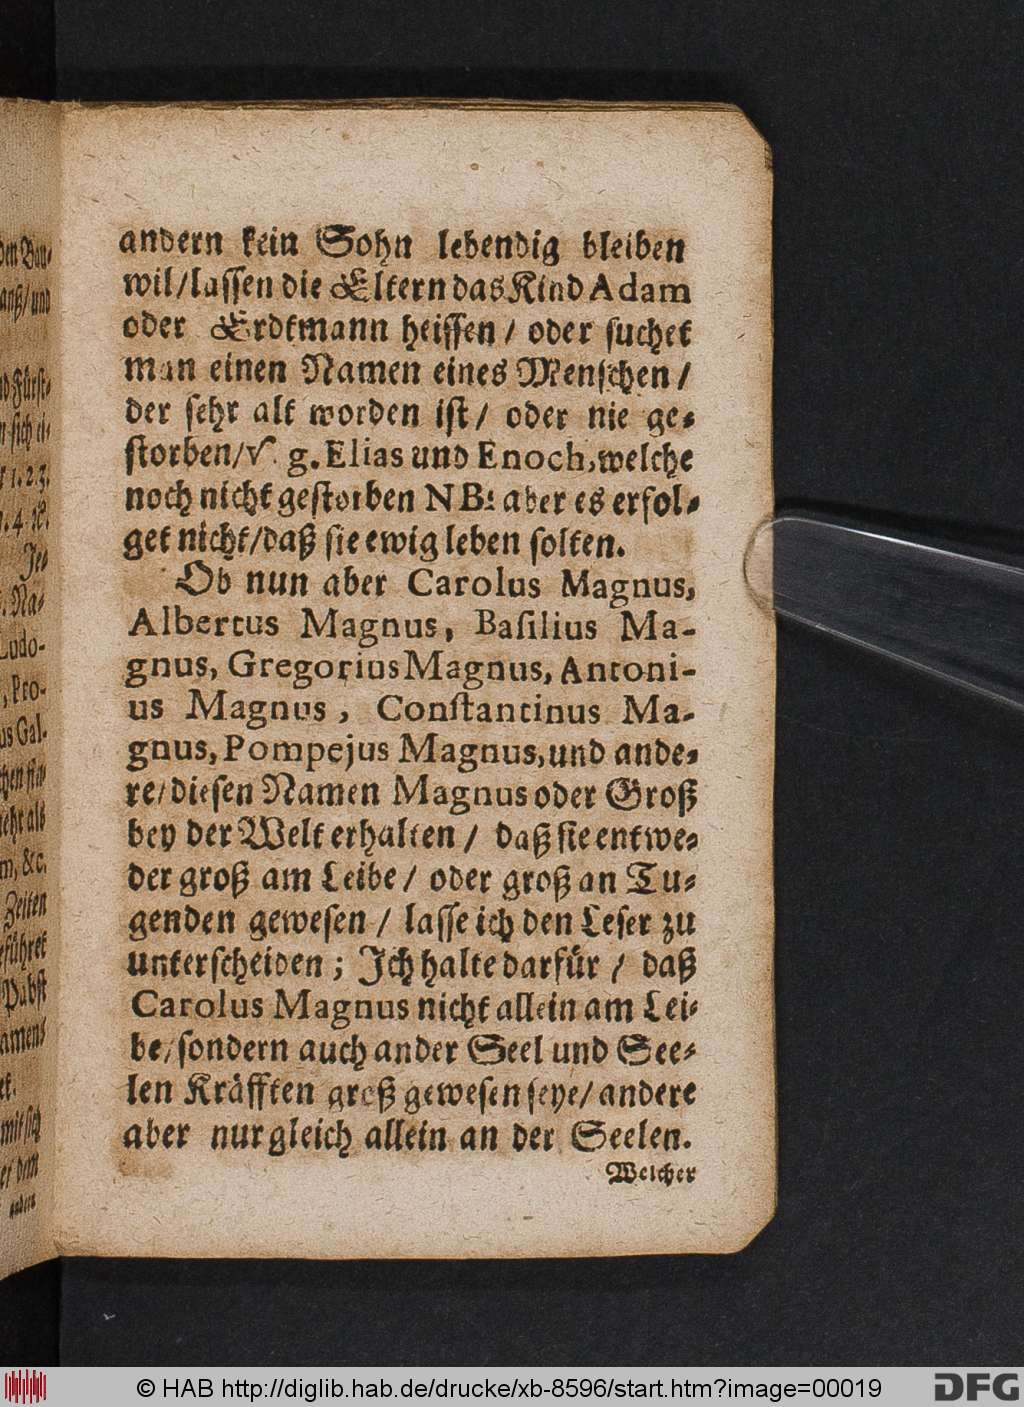 andern kein Sohn lebendig bleiben
wil/lassen die Eltern das Kind Adam
oder Erdtmann heissen / oder suchet
man einen Namen eines Menschen /
der sehr alt worden ist / oder nie ge-
storben/v. g. Elias und Enoch, welche
noch nicht gestorben NB: aber es erfol-
get nicht/daß sie ewig leben solten.
Ob nun aber Carolus Magnus,
Albertus Magnus, Basilius Ma-
gnus, Gregorius Magnus, Antoni-
us Magnus, Constantinus Ma-
gnus, Pompejus Magnus, und ande-
re/diesen Namen Magnus oder Groß
bey der Welt erhalten / daß sie entwe-
der groß am Leibe / oder groß an Tu-
genden gewesen / lasse ich den Leser zu
unterscheiden; Ich halte darfür / daß
Carolus Magnus nicht allein am Lei-
be/sondern auch an der Seel und See-
len Kräfften groß gewesen seye/andere
aber nur gleich allein an der Seelen.
Welcher
den Bau-
und
Fürst-
1. 2. 3.
Je-
Na-
Ludo-
, Pro-
us Gal-
m, &c.
Zeiten
Pabst
mit sich
andern
© HAB http://diglib.hab.de/drucke/xb-8596/start.htm?image=00019
DFG